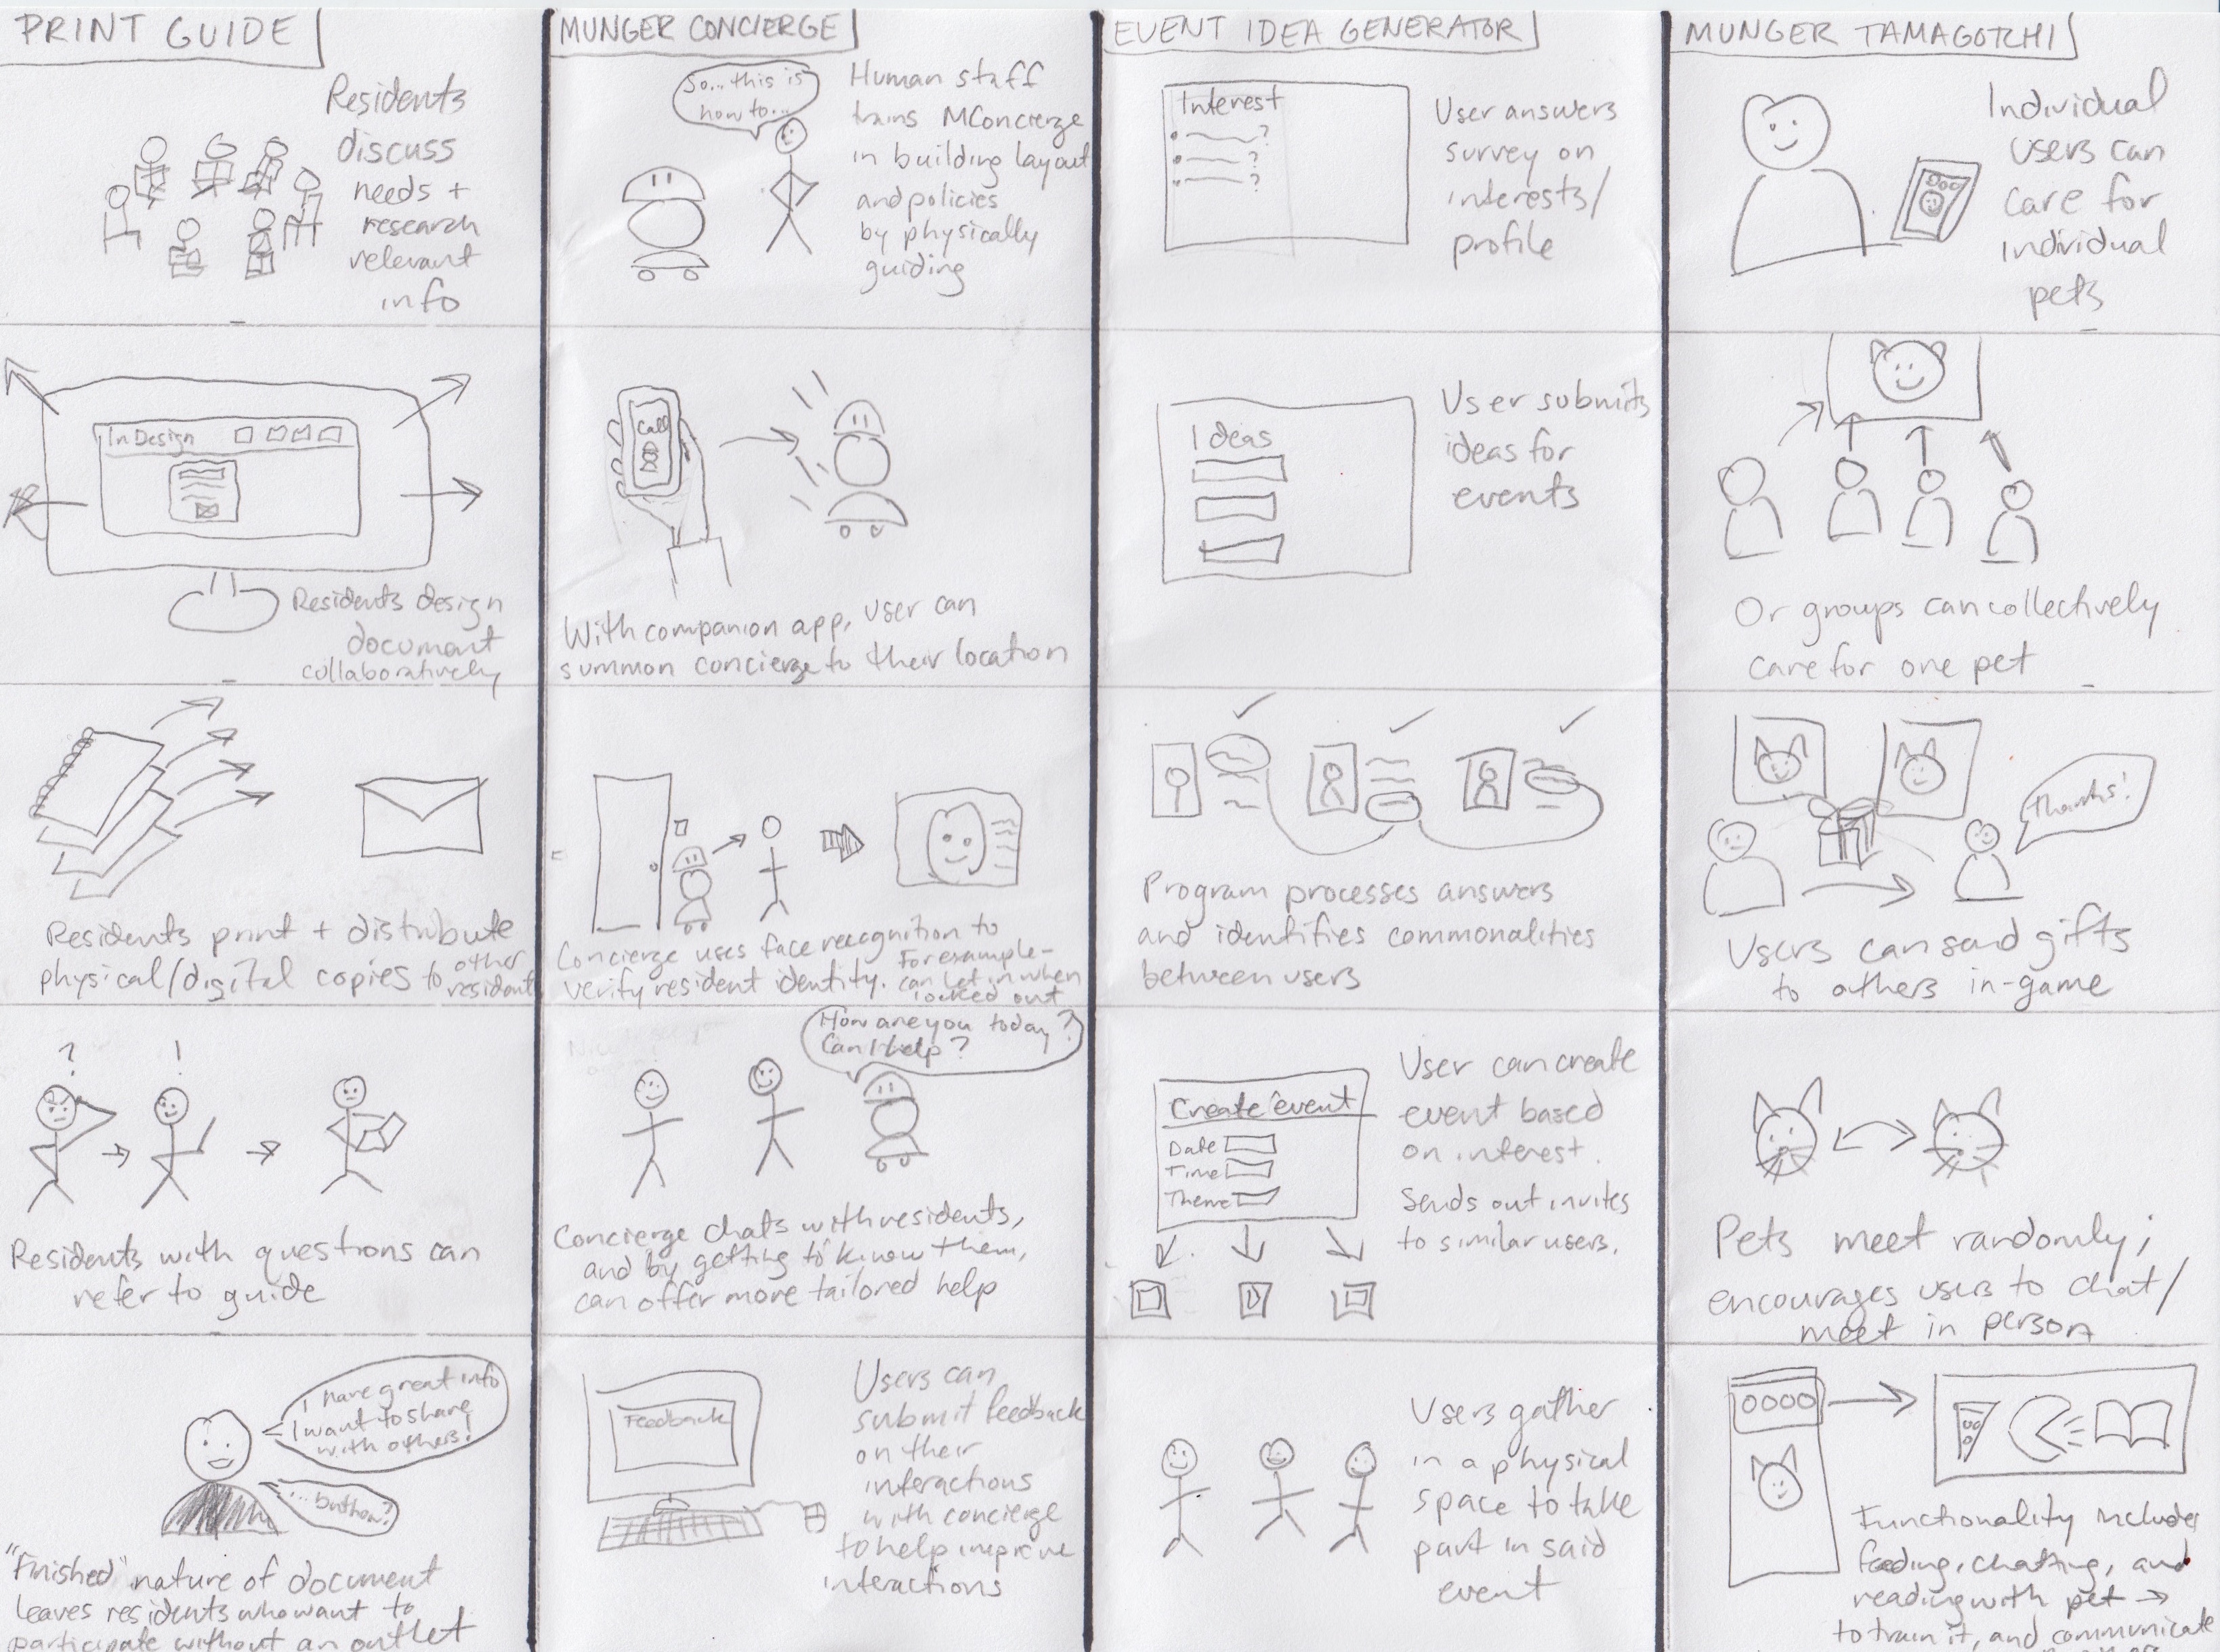 PRINT GUIDE
Residents
discuss
needs +
research
relevant
info
InDesign
Residents design
document
collaboratively
Residents print + distribute
physical/digital copies to other
resident
?
!
Residents with questions can
refer to guide
I have great info
I want to share
with others!
...but how?
"Finished" nature of document
leaves residents who want to
participate without an outlet
MUNGER CONCIERGE
So... this is
how to...
Human staff
trains MConcierge
in building layout
and policies
by physically
guiding
Call
With companion app, user can
summon concierge to their location
Concierge uses face recognition to
verify resident identity. For example-
can let in when
locked out
How are you today?
Can I help?
Concierge chats with residents,
and by getting to know them,
can offer more tailored help
Feedback
Users can
submit feedback
on their
interactions
with concierge
to help improve
interactions
EVENT IDEA GENERATOR
Interest
?
?
?
User answers
survey on
interests/
profile
Ideas
User submits
ideas for
events
Program processes answers
and identifies commonalities
between users
Create event
Date
Time
Theme
User can create
event based
on interest.
Sends out invites
to similar users.
Users gather
in a physical
space to take
part in said
event
MUNGER TAMAGOTCHI
Individual
users can
care for
individual
pets
Or groups can collectively
care for one pet
Thanks!
Users can send gifts
to others in-game
Pets meet randomly;
encourages users to chat/
meet in person
Functionality includes
feeding, chatting, and
reading with pet →
to train it, and communicate